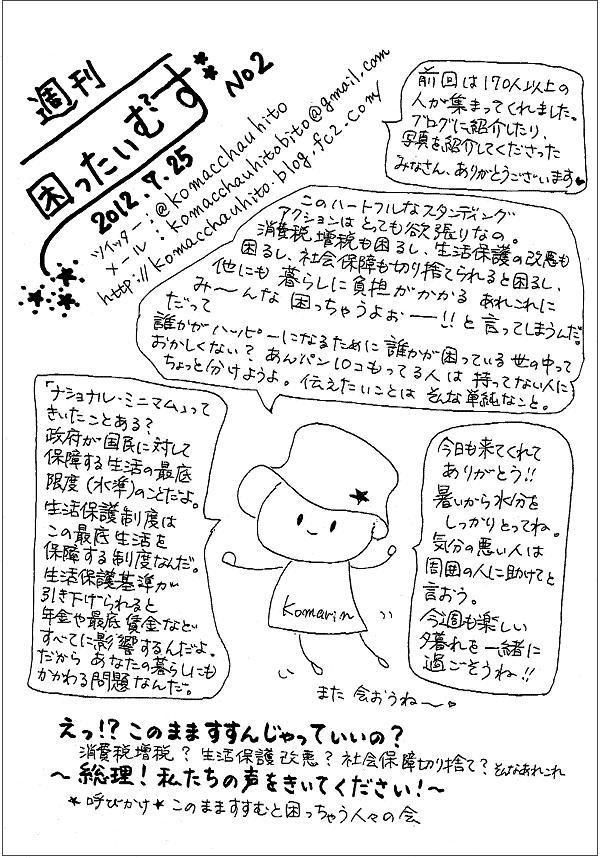 週刊
困ったいむす
No2
2012.7.25
ツイッター:@komacchauhito
メール:komacchauhitobito@gmail.com
http://komacchauhito.blog.fc2.com/
前回は170人以上の
人が集まってくれました。
ブログに紹介したり、
写真を紹介してくださった
みなさん、ありがとうございます
このハートフルなスタンディング
アクションはとっても欲張りなの。
消費税増税も困るし、生活保護の改悪も
困るし、社会保障も切り捨てられると困るし、
他にも暮らしに負担がかかるあれこれに
み〜んな困っちゃうよぉー!!と言ってしまうんだ。
だって
誰かがハッピーになるために誰かが困っている世の中って
おかしくない?あんパン10コもってる人は持ってない人に
ちょっと分けようよ。伝えたいことはそんな単純なこと。
「ナショナル・ミニマム」って
きいたことある?
政府が国民に対して
保障する生活の最底
限度(水準)のことだよ。
生活保護制度は
この最底生活を
保障する制度なんだ。
生活保護基準が
引き下げられると
年金や最底賃金など
すべてに影響するんだよ。
だからあなたの暮らしにも
かかわる問題なんだ。
今日も来てくれて
ありがとう!!
暑いから水分を
しっかりとってね。
気分の悪い人は
周囲の人に助けてと
言おう。
今週も楽しい
夕暮れを一緒に
過ごそうね!!
komarin
また会おうね〜
えっ!?このまますすんじゃっていいの?
消費税増税?生活保護改悪?社会保障切り捨て?そんなあれこれ
〜総理!私たちの声をきいてください!〜
*呼びかけ*このまますすむと困っちゃう人々の会